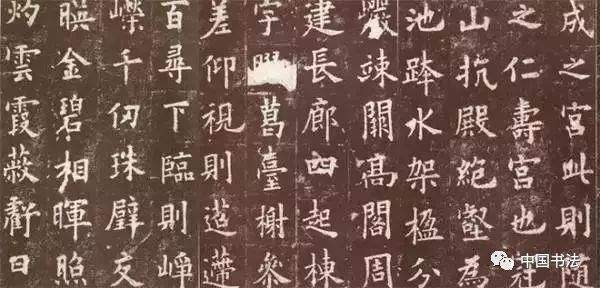 成之宮此則隨
之仁壽宮也冠
山抗殿絶壑為
池跨水架楹分
巖竦闕高閣周
建長廊四起棟
宇膠葛臺榭參
差仰視則迢遰
百尋下臨則崢
嶸千仞珠璧交
暎金碧相暉照
灼雲霞蔽虧日
中国书法